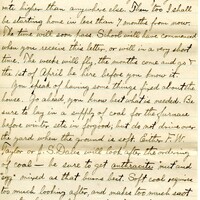 rate higher than anywhere else. Then too I shall
be starting home in less than 7 months from now.
The time will soon pass. School will have commenced
when you receive this letter, or will in a very short
time. The weeks will fly, the months come and go &
the 1st of April be here before you know it.
You speak of having some things fixed about the
house. Go ahead, you know best what is needed. Be
sure to lay in a supply of coal for the furnace
before winter sets in for good, but do not drive over
the yard when the ground is soft. Either F. W.
Taylor or J. S. Dales will look after the ordering
of coal — be sure to get anthracite "nut and
egg" mixed as that burns best. Soft coal requires
too much looking after, and makes too much soot